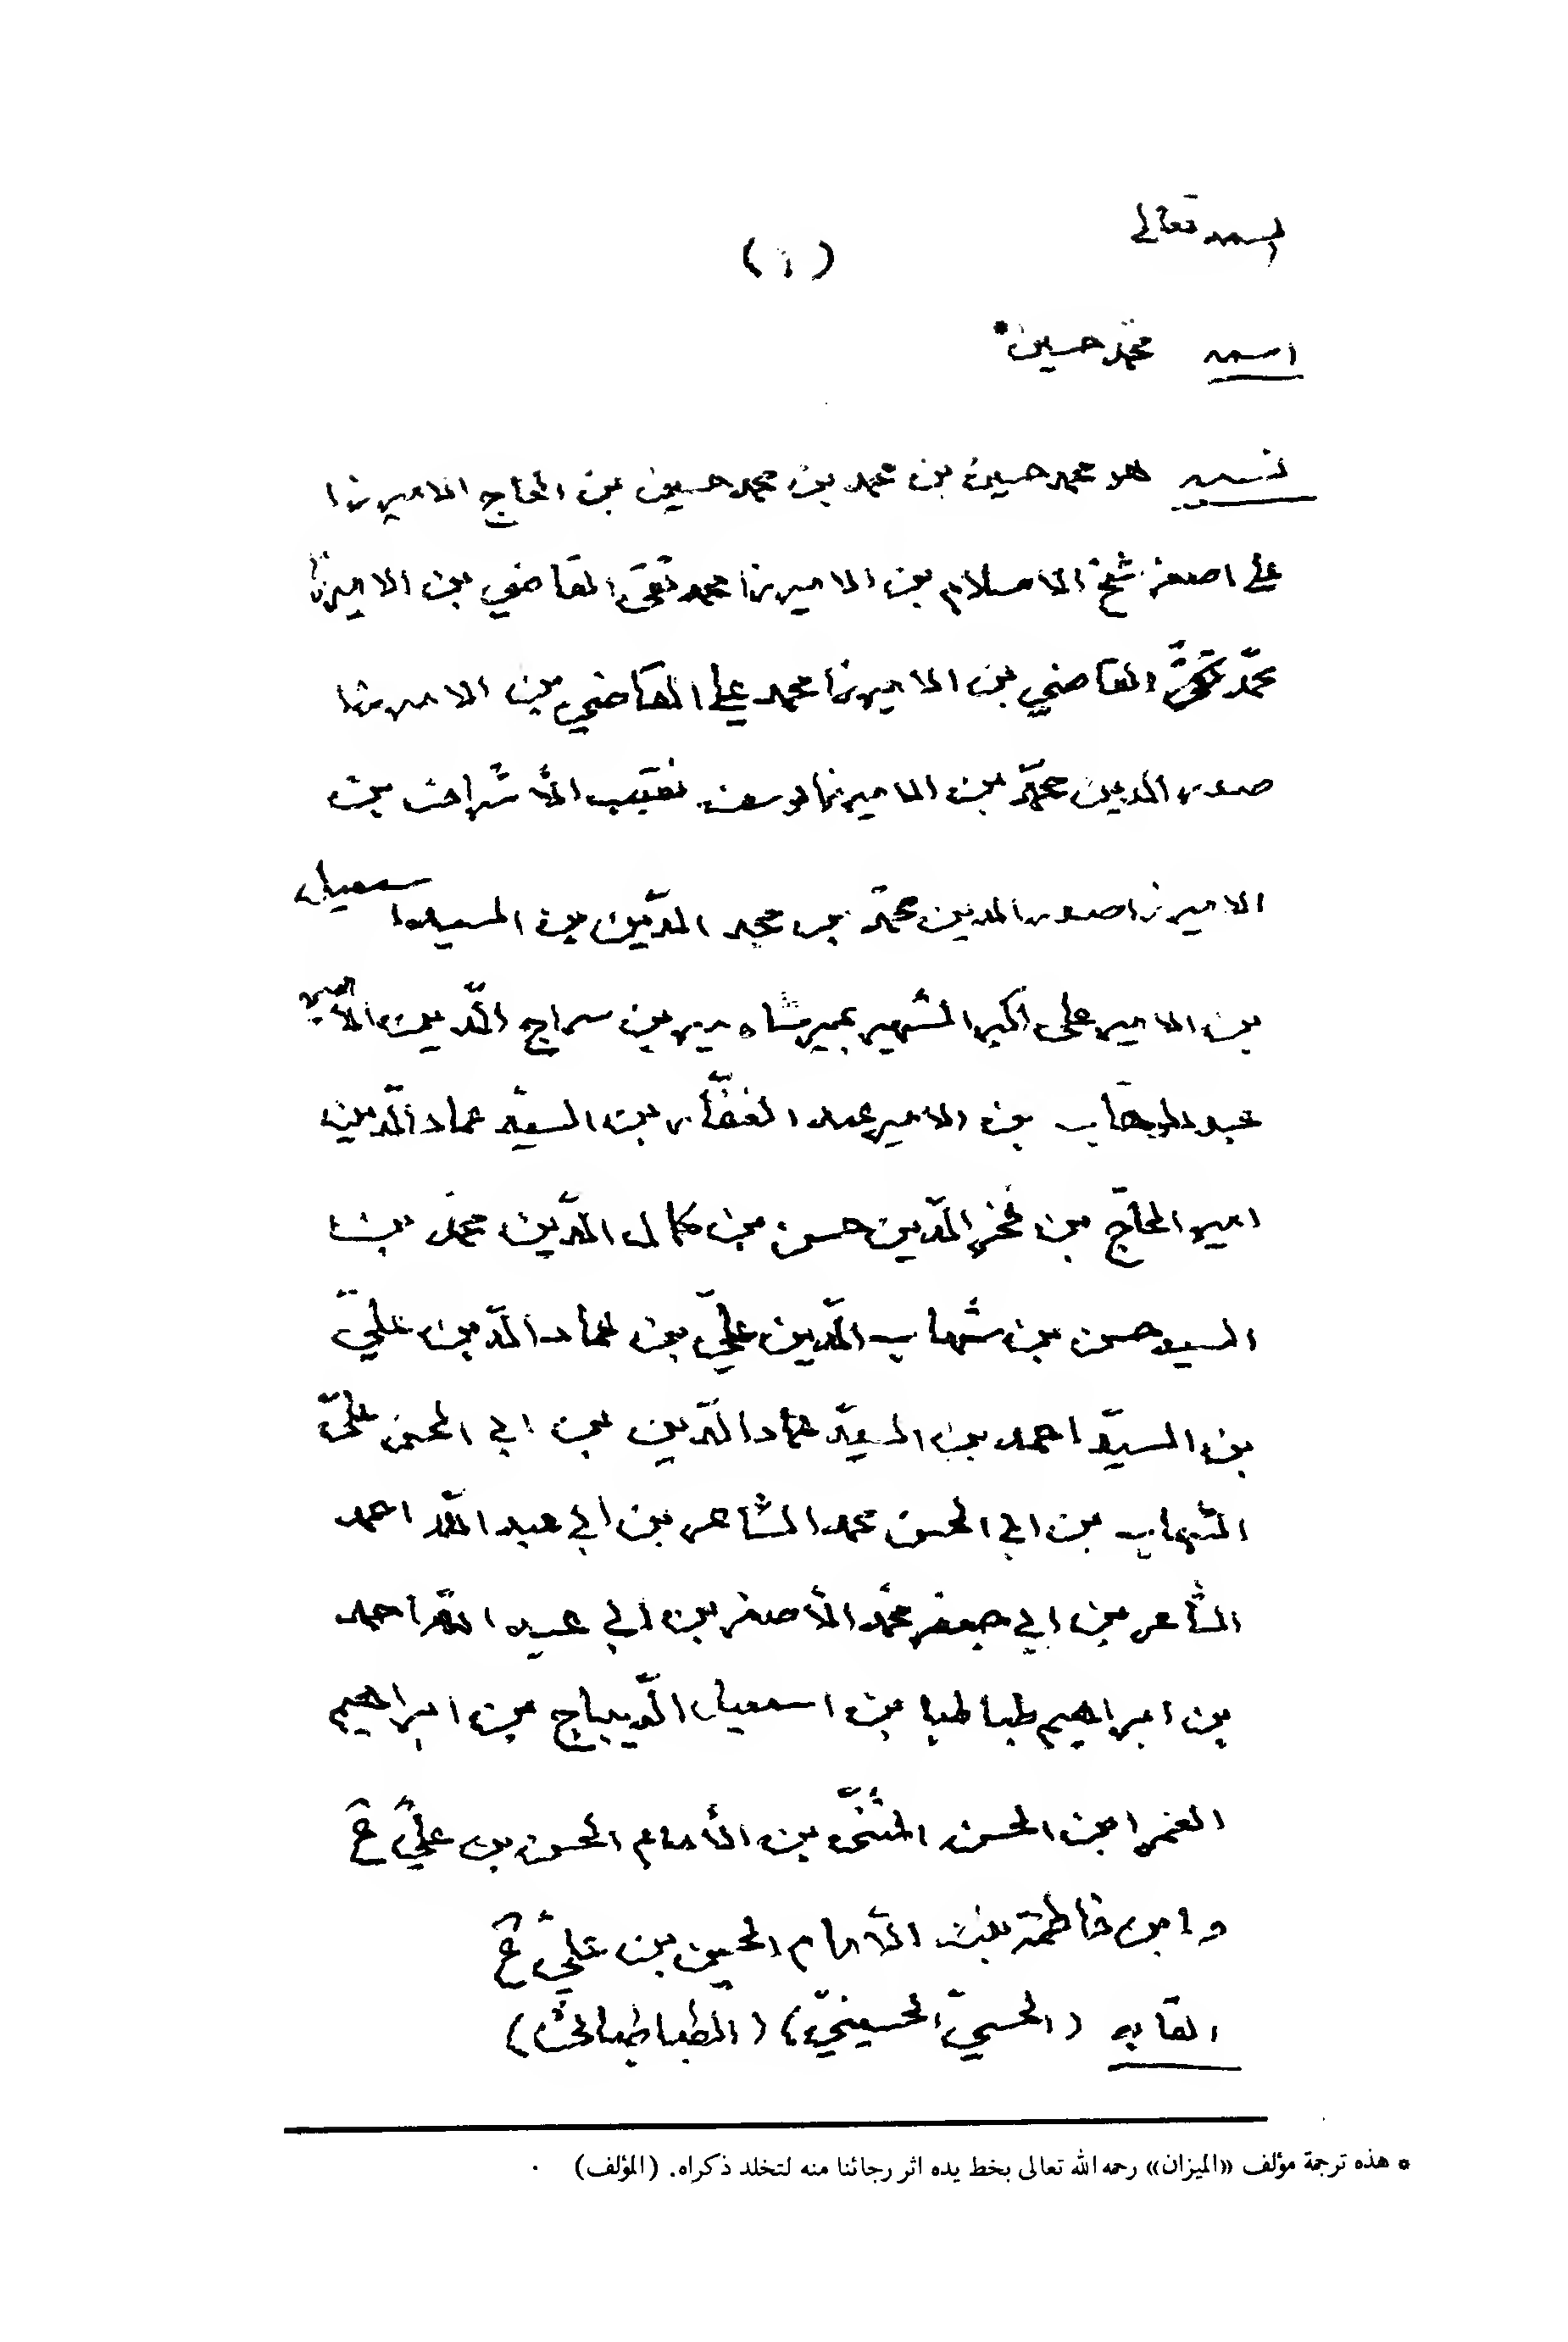 بسمه تعالى
(١)
اسمه محمد حسين*
نسبه هو محمد حسين بن محمد بن محمد حسين بن الحاج الاميرزا
على اصغر شيخ الاسلام بن الاميرزا محمد تقى القاضي بن الاميرزا
محمّد القاضي بن الاميرزا محمد على القاضي بن الاميرزا
صدر الدين محمّد بن الاميرزا يوسف نقيب الأشراف بن
الاميرزا صدر الدين محمّد بن مجد الدّين بن السيد اسمعيل
بن الامير على اكبر الشهير بمير شاه مير بن سراج الدّين الأمير
عبد الوهّاب بن الامير عبد الغفّار بن السيّد عماد الدّين
امير الحاجّ بن فخر الدّين حسن بن كمال الدّين محمّد بن
السيد حسن بن شهاب الدّين عليّ بن عماد الدّين عليّ
بن السيّد احمد بن السيّد عماد الدّين بن ابي الحسن عليّ
الشهاب بن ابي الحسن محمد الشاعر بن ابي عبد اللّه احمد
الشّاعر بن ابي جعفر محمّد الأصغر بن ابي عبد اللّه احمد
بن ابراهيم طباطبا بن اسمعيل الدّيباج بن ابراهيم
الغمر ابن الحسن المثنّى بن الأمام الحسن بن عليّ ع
و ابن فاطمة بنت الأمام الحسين بن عليّ ع
القابه (الحسنيّ الحسينيّ) (الطباطبائىّ)
* هذه ترجمة مؤلف «الميزان» رحمه الله تعالى بخط يده اثر رجائنا منه لتخلد ذكراه. (المؤلف)